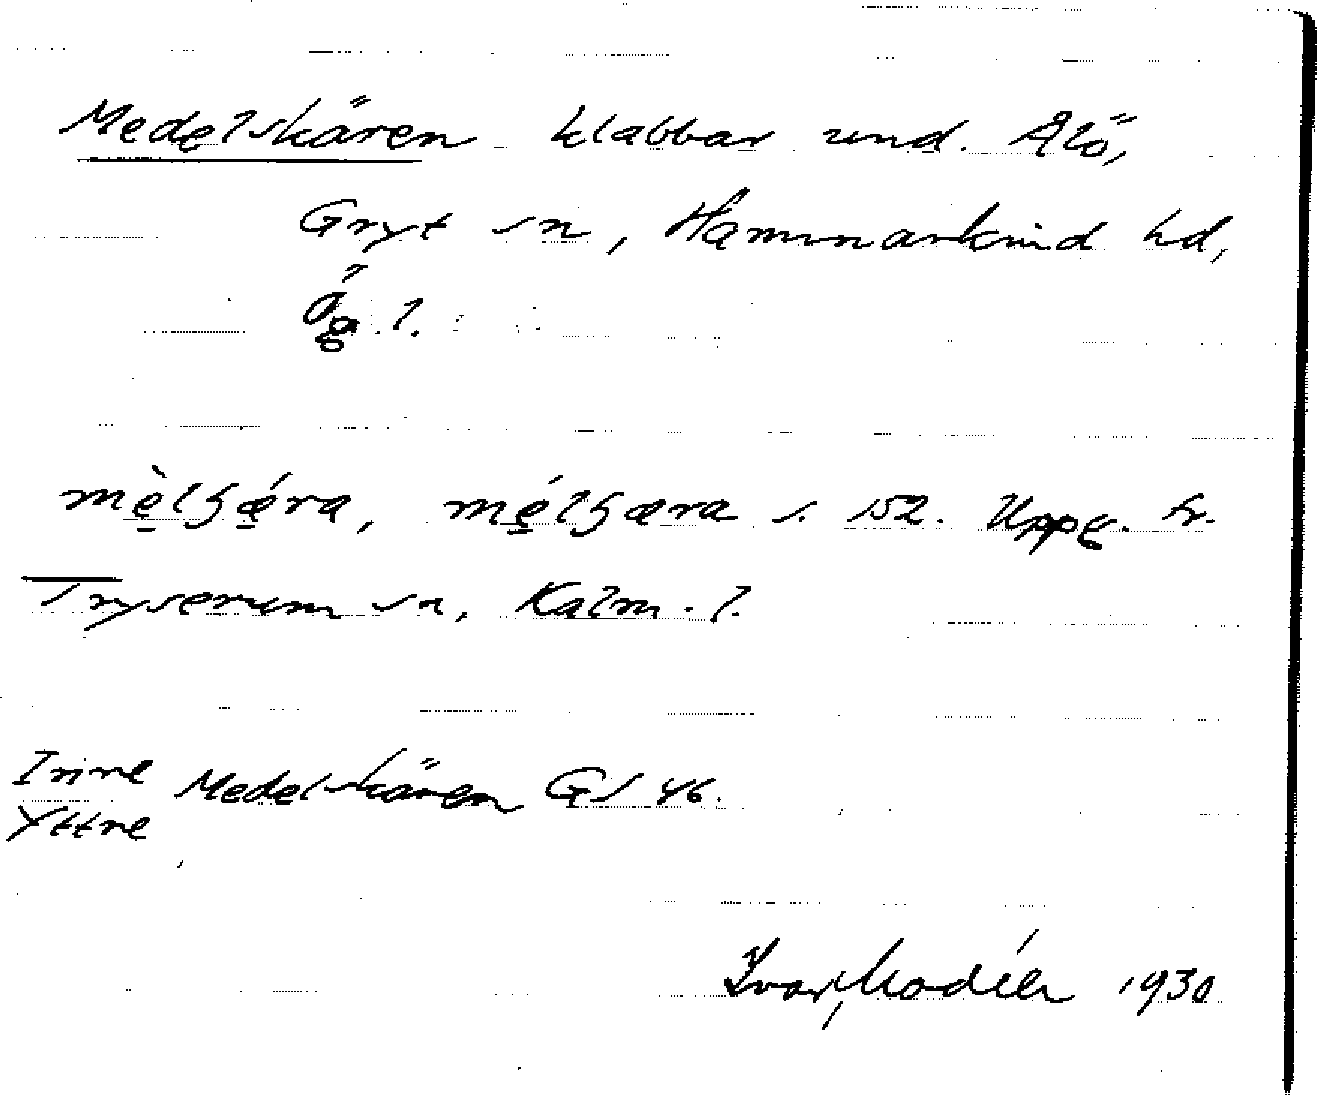 Medelskären klabbar und. Ålö,
Gryt sn, Hammarkind hd,
Ög. l.
mèlʃǽra, mélʃæra s. 152. Uppg. fr.
Tryserum sn, Kalm. l.
Inre
Yttre Medelskären GS 46.
Ivar Modéer 1930